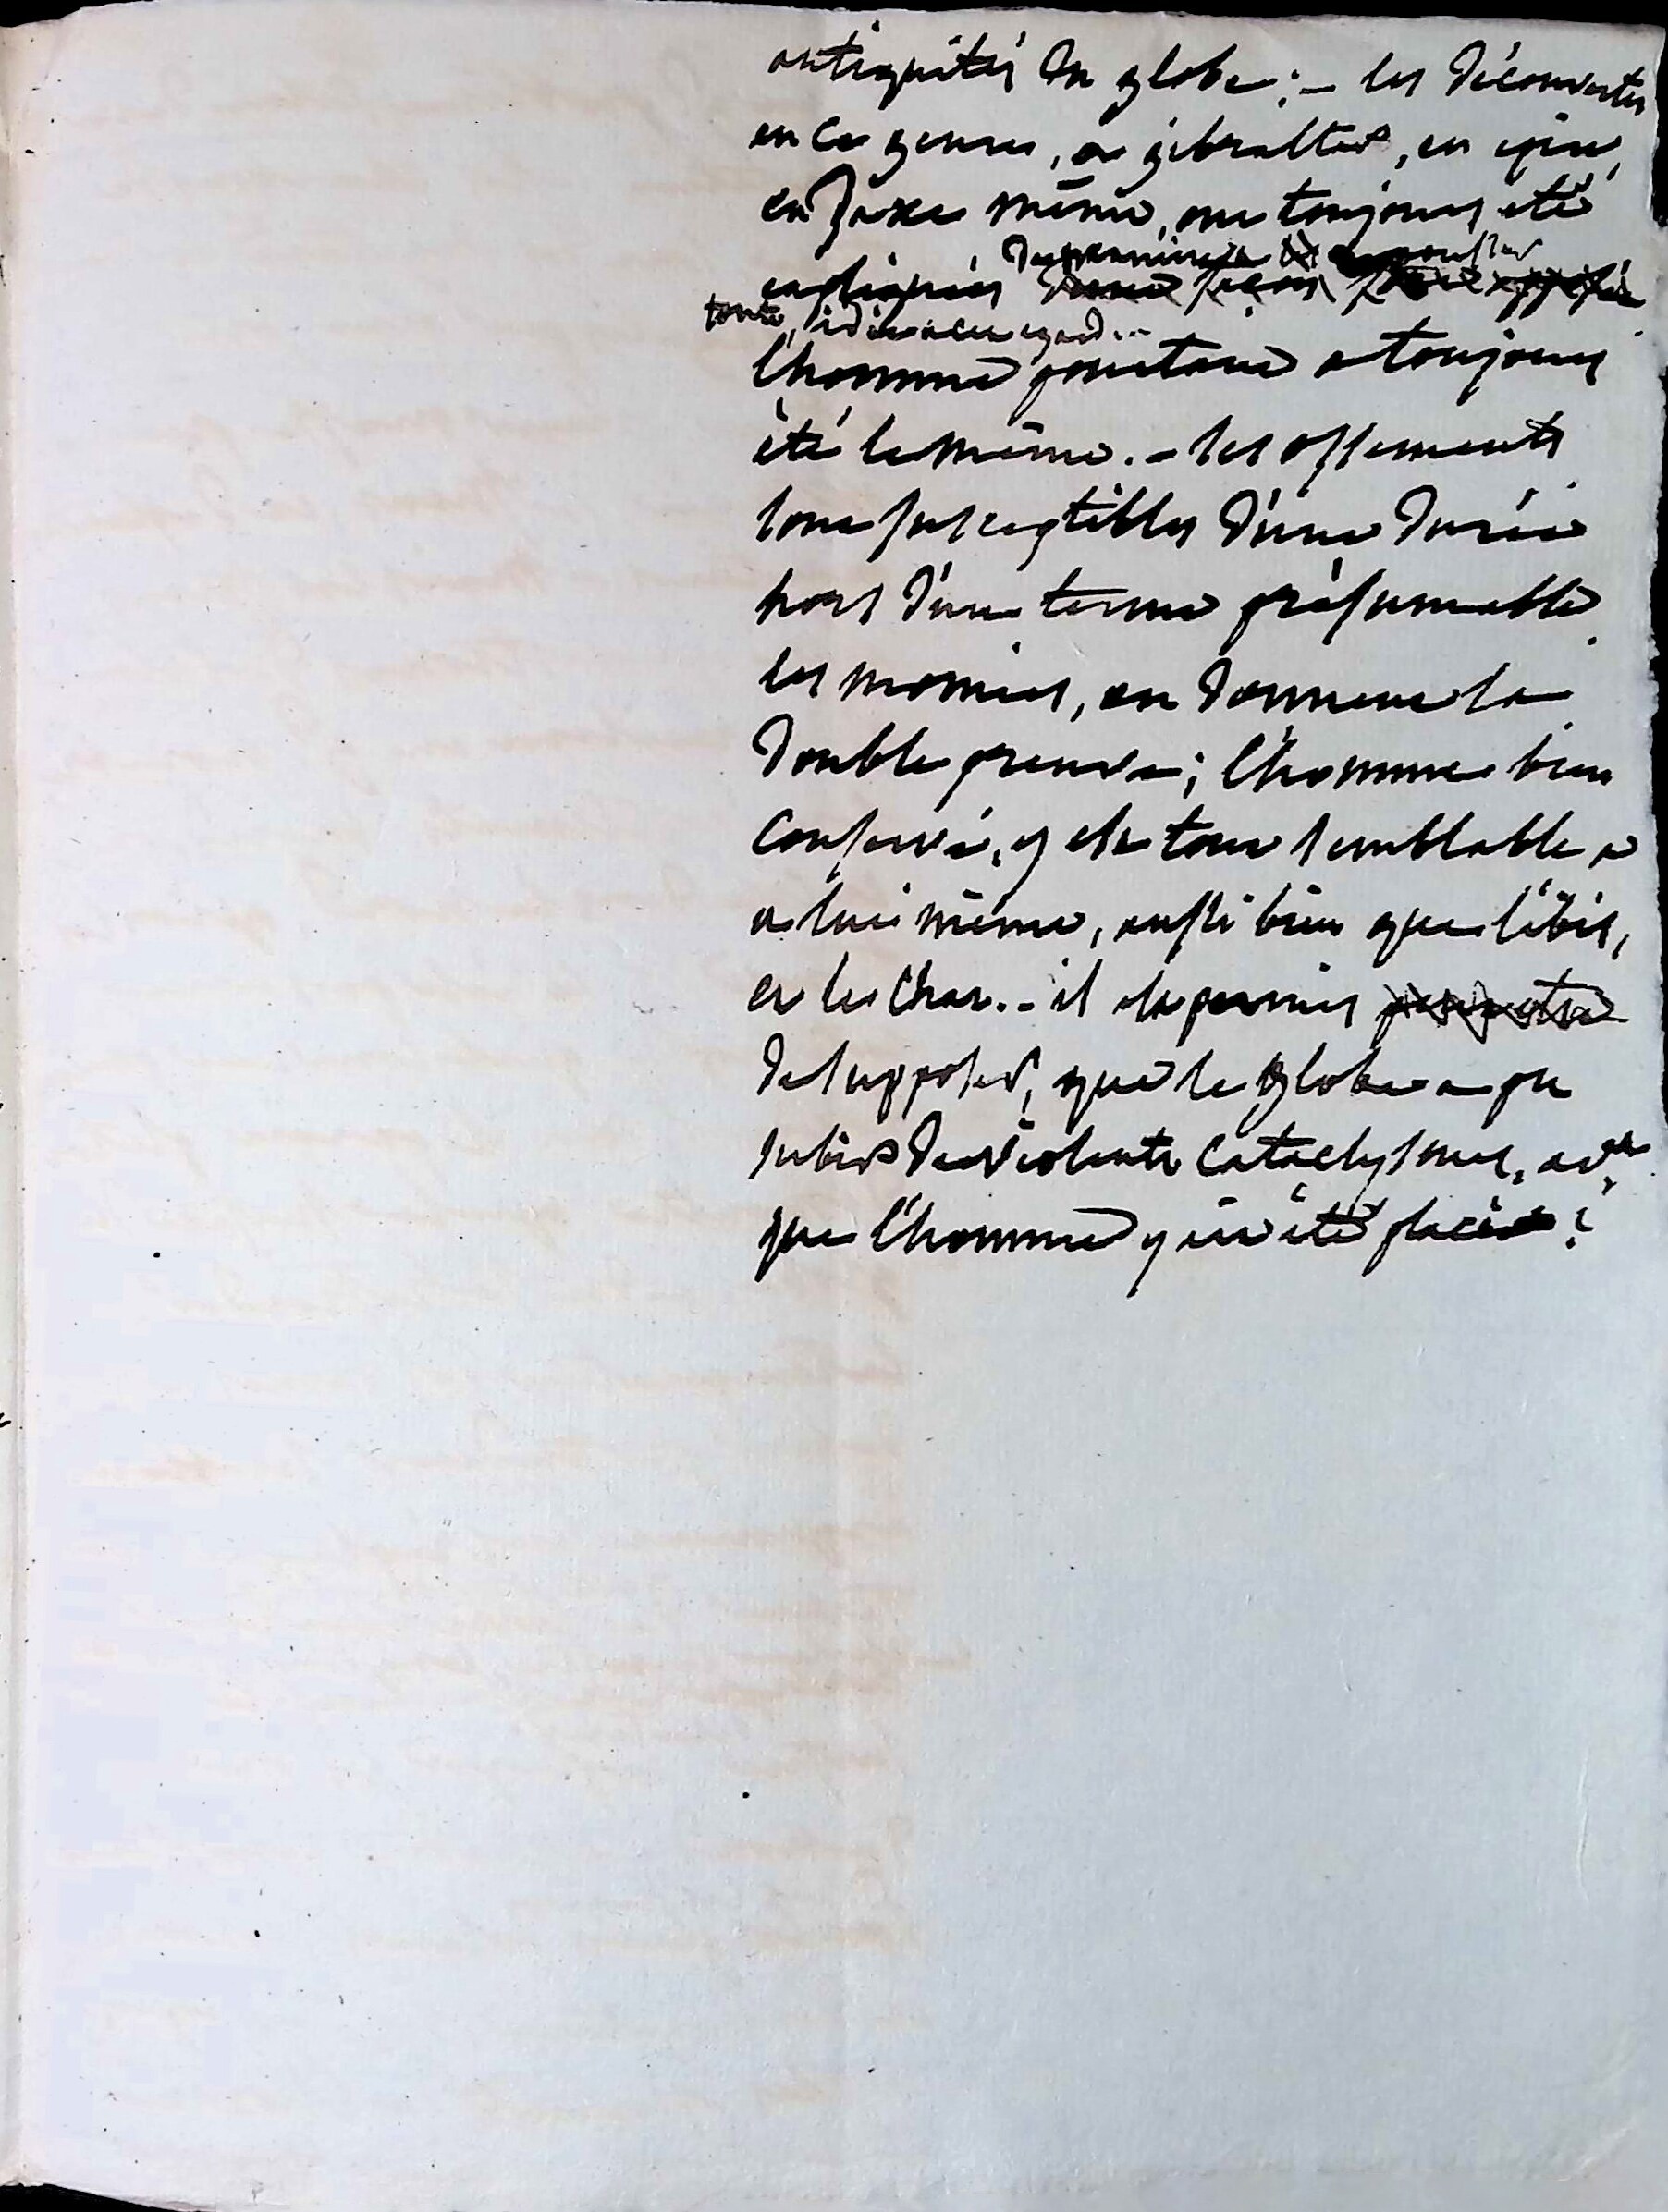 antiquités du globe ; – les découvertes
en ce genre, a gibraltar, en epire,
en Saxe même, ont toujours eté
de maniere a repousser
expliquées d'une façon
toute idée a cet egard...
l'homme pourtant a toujours
été le même. – les ossements
sont susceptibles d'une durée
hors d'un terme présumable.
les momies, en donnent la
double preuve ; l'homme bien
conservé, y est tout semblable a
a lui même, aussi bien que l'ibis,
et le chat. – il est permis peut-etre
de supposer, que le globe a pu
subir de violents cataclysmes, avt
que l'homme y eut été placé ?